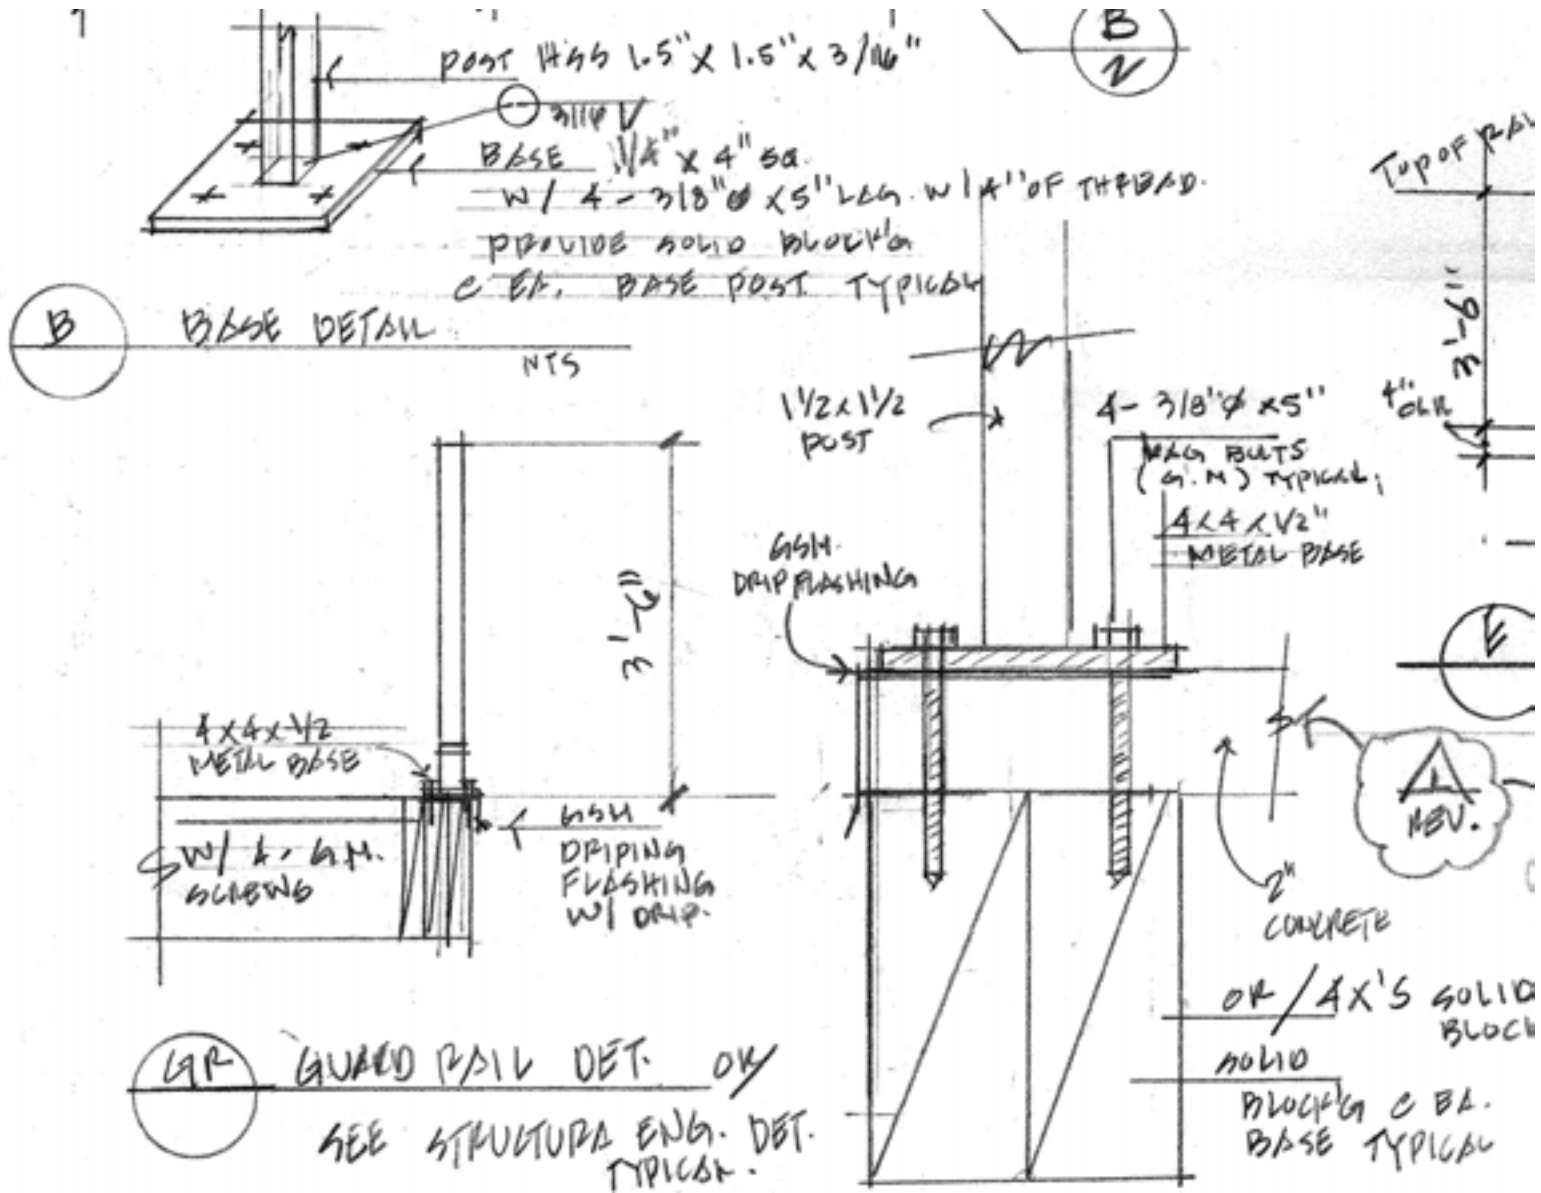 B
2
POST HSS 1.5" X 1.5" X 3/16"
3/16 V
BASE 1/4" X 4" SQ.
W/ 4 - 3/8" Ø X 5" LAG. W/ 4" OF THREAD.
PROVIDE SOLID BLOCK'G
C EA. BASE POST TYPICAL
B
BASE DETAIL
NTS
TOP OF RAI
3'-6"
4"
CLR
1 1/2 X 1 1/2
POST
4 - 3/8" Ø X 5"
LAG BOLTS
(G.M) TYPICAL,
4 X 4 X 1/2"
METAL BASE
GSM.
DRIP FLASHING
E
3'-6"
4 X 4 X 1/2
METAL BASE
W/ 4 - G.M.
SCREWS
GSM
DRIPING
FLASHING
W/ DRIP.
1
REV.
2"
CONCRETE
OR / 4X'S SOLID
BLOCK
SOLID
BLOCK'G C EA.
BASE TYPICAL
GR
GUARD RAIL DET. OR/
SEE STRUCTURA ENG. DET.
TYPICAL.